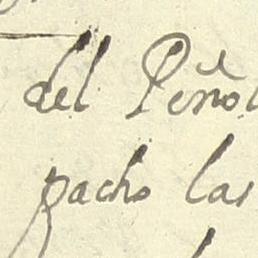 del Peñol
pacho las